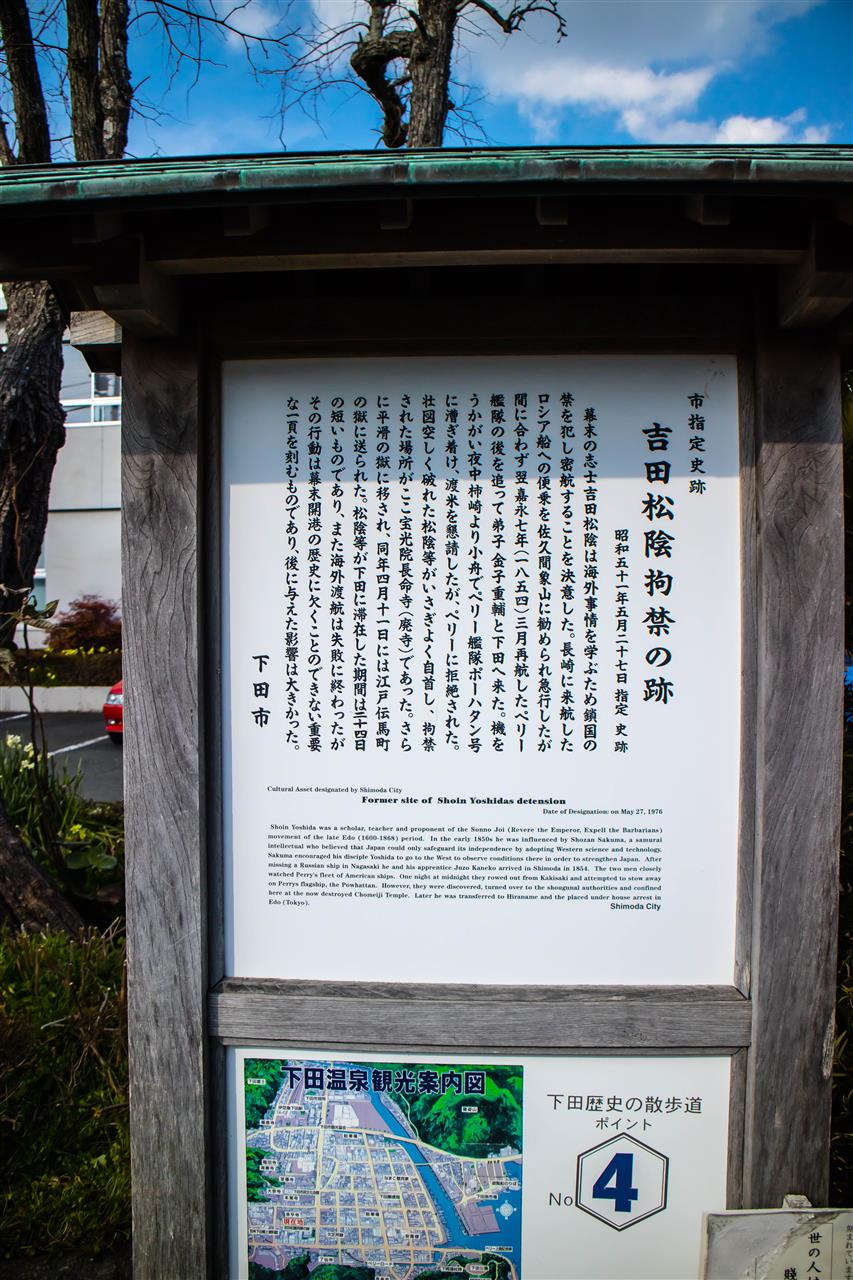 市指定史跡
吉田松陰拘禁の跡
昭和五十一年五月二十七日 指定 史跡
幕末の志士吉田松陰は海外事情を学ぶため鎖国の
禁を犯し密航することを決意した。長崎に来航した
ロシア船への便乗を佐久間象山に勧められ急行したが
間に合わず翌嘉永七年(一八五四)三月再航したペリー
艦隊の後を追って弟子金子重輔と下田へ来た。機を
うかがい夜中柿崎より小舟でペリー艦隊ポーハタン号
に漕ぎ着け、渡米を懇請したが、ペリーに拒絶された。
壮図空しく破れた松陰等がいさぎよく自首し、拘禁
された場所がここ宝光院長命寺(廃寺)であった。さら
に平滑の獄に移され、同年四月十一日には江戸伝馬町
の獄に送られた。松陰等が下田に滞在した期間は二十四日
の短いものであり、また海外渡航は失敗に終わったが
その行動は幕末開港の歴史に欠くことのできない重要
な一頁を刻むものであり、後に与えた影響は大きかった。
下田市
Cultural Asset designated by Shimoda City
Former site of Shoin Yoshidas detension
Date of Designation: on May 27, 1976
Shoin Yoshida was a scholar, teacher and proponent of the Sonno Joi (Revere the Emperor, Expell the Barbarians)
movement of the late Edo (1600-1868) period. In the early 1850s he was influenced by Shozan Sakuma, a samurai
intellectual who believed that Japan could only safeguard its independence by adopting Western science and technology.
Sakuma encouraged his disciple Yoshida to go to the West to observe conditions there in order to strengthen Japan. After
missing a Russian ship in Nagasaki he and his apprentice Juzo Kaneko arrived in Shimoda in 1854. The two men closely
watched Perry's fleet of American ships. One night at midnight they rowed out from Kakisaki and attempted to stow away
on Perrys flagship, the Powhattan. However, they were discovered, turned over to the shongunal authorities and confined
here at the now destroyed Chomeiji Temple. Later he was transferred to Hiraname and the placed under house arrest in
Edo (Tokyo).
Shimoda City
下田温泉観光案内図
現在地
ペリーロード
下田歴史の散歩道
ポイント
No 4
世の人は